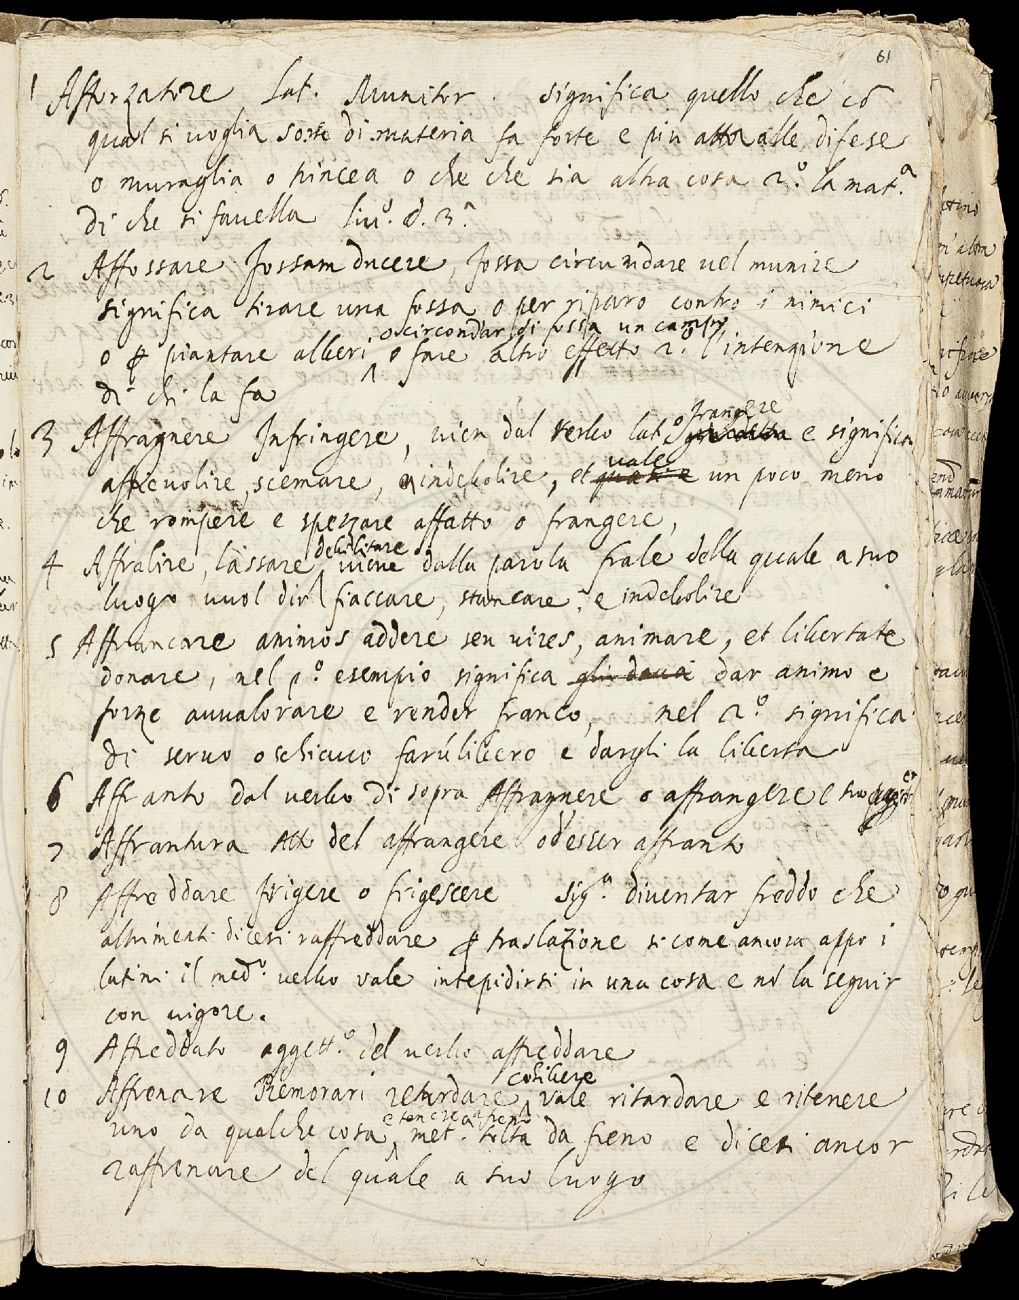 61
1 Afforzatore Lat. Munitor. significa quello che cō
qual si voglia sorte di materia fa forte e piu atta alle difese
o muraglia o trincea o che che sia altra cosa 2.º la mat.ª
di che si favella liu.º d. 3.ª
2 Affossare fossam ducere, fossa circundare vel munire
significa tirare una fossa o per riparo contro i nimici
o circondar di fossa un campo,
o piantare alberi o fare altro effetto 2.º l'intenzione
di chi la fa
frangere
3 Affragnere Infringere, vien dal verbo lat.º e significa
vale
affievolire, scemare, indebolire, et un poco meno
che rompere e spezzare affatto o frangere,
debilitare
4 Affralire, lassare, viene dalla parola frale della quale a suo
luogo vuol dir fiaccare, stancare, e indebolire
5 Affrancare animos addere seu vires, animare, et libertate
donare, nel p.º esempio significa dar animo e
forze avvalorare e render franco, nel 2.º significa
di servo o schiavo farlo libero e dargli la libertà
6 Affranto dal verbo di sopra Affragnere o affrangere e suo
7 Affrantura Att del affrangere o d'esser affranto
8 Affreddare frigere o frigescere sig.ª diventar freddo che
altrimenti dicesi raffreddare traslazione si come ancora appo i
latini il med.º verbo vale intepidirsi in una cosa e nō la seguir
con vigore.
9 Affreddato aggett.º del verbo affreddare
cohibere
10 Affrenare Remorari retardare, vale ritardare e ritenere
e tenere a freno
uno da qualche cosa, met. tolta da freno e dicesi ancor
raffrenare del quale a suo luogo